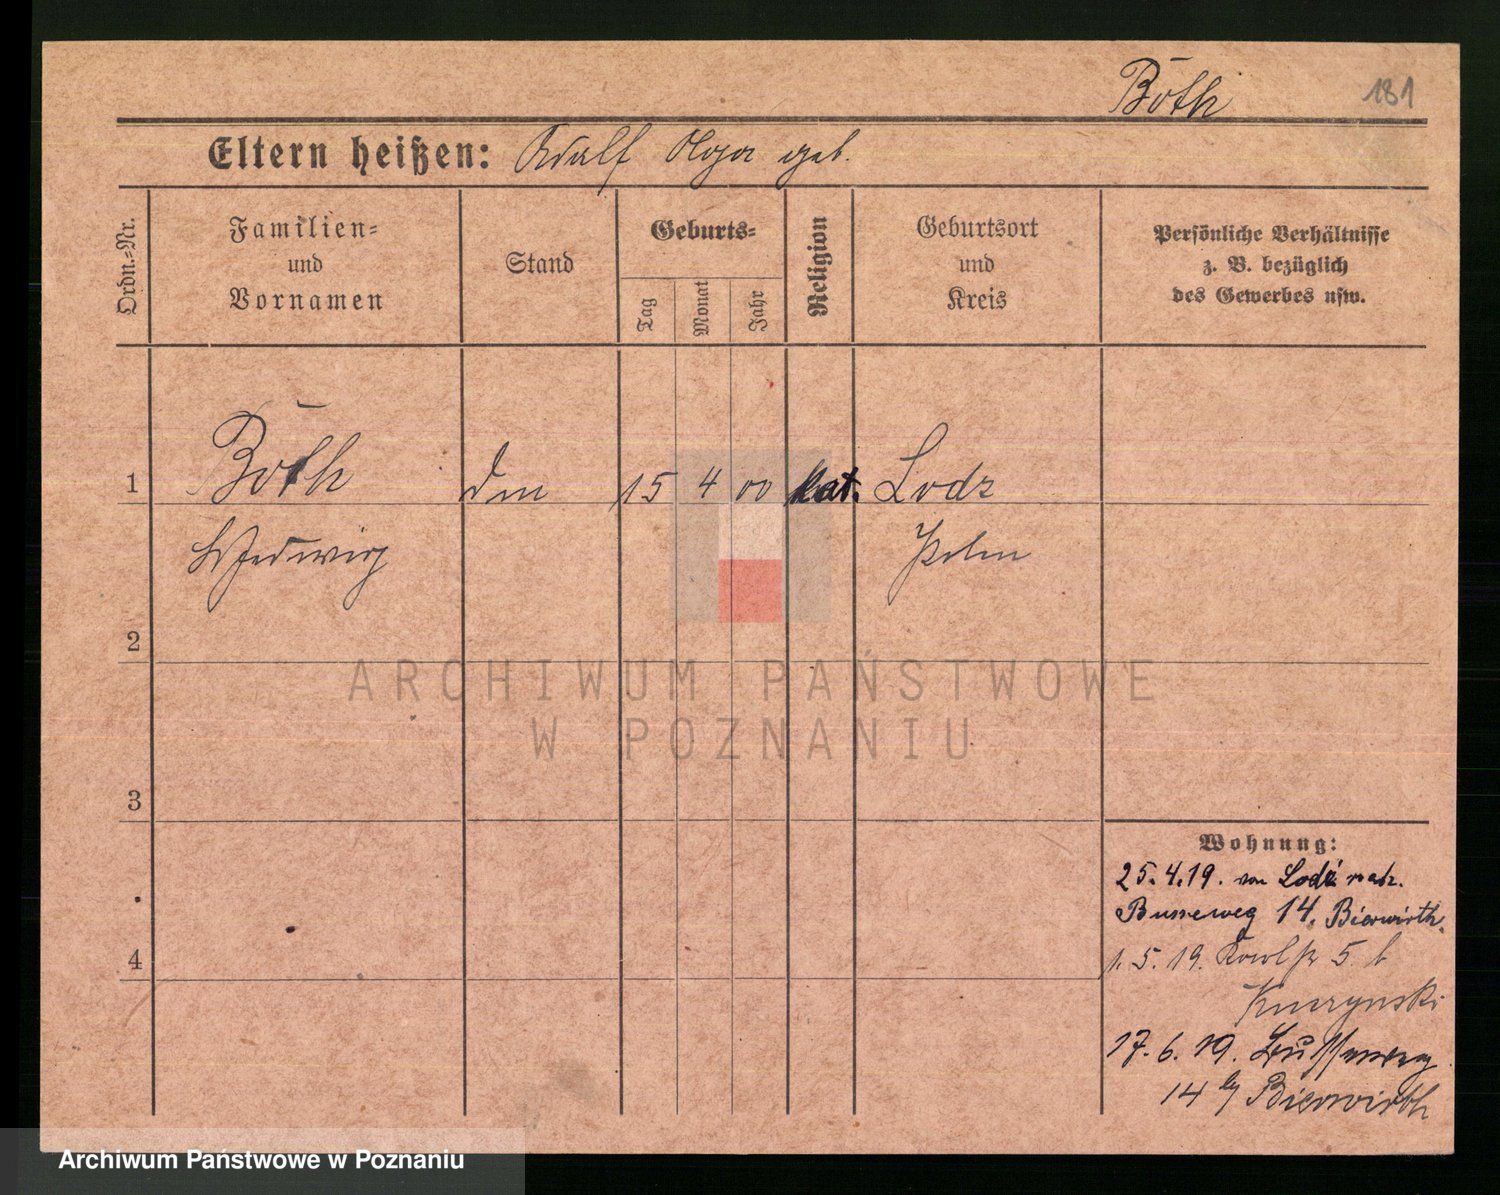 Böth 181
Eltern heißen: Adolf Olga geb.
Ordn.-Nr.
Familien=
und
Vornamen
Stand
Geburts=
Tag
Monat
Jahr
Religion
Geburtsort
und
Kreis
Persönliche Verhältnisse
z. B. bezüglich
des Gewerbes usw.
1 Böth 15 4 00 kat. Lodz
Hedwig Polen
2
3
4
Wohnung:
25.4.19. von Lodź
Busseweg 14, Bierwirth.
1. 5. 19. 5 b
17. 6. 19. Busseweg
14 by Bierwirth
ARCHIWUM PAŃSTWOWE
W POZNANIU
Archiwum Państwowe w Poznaniu